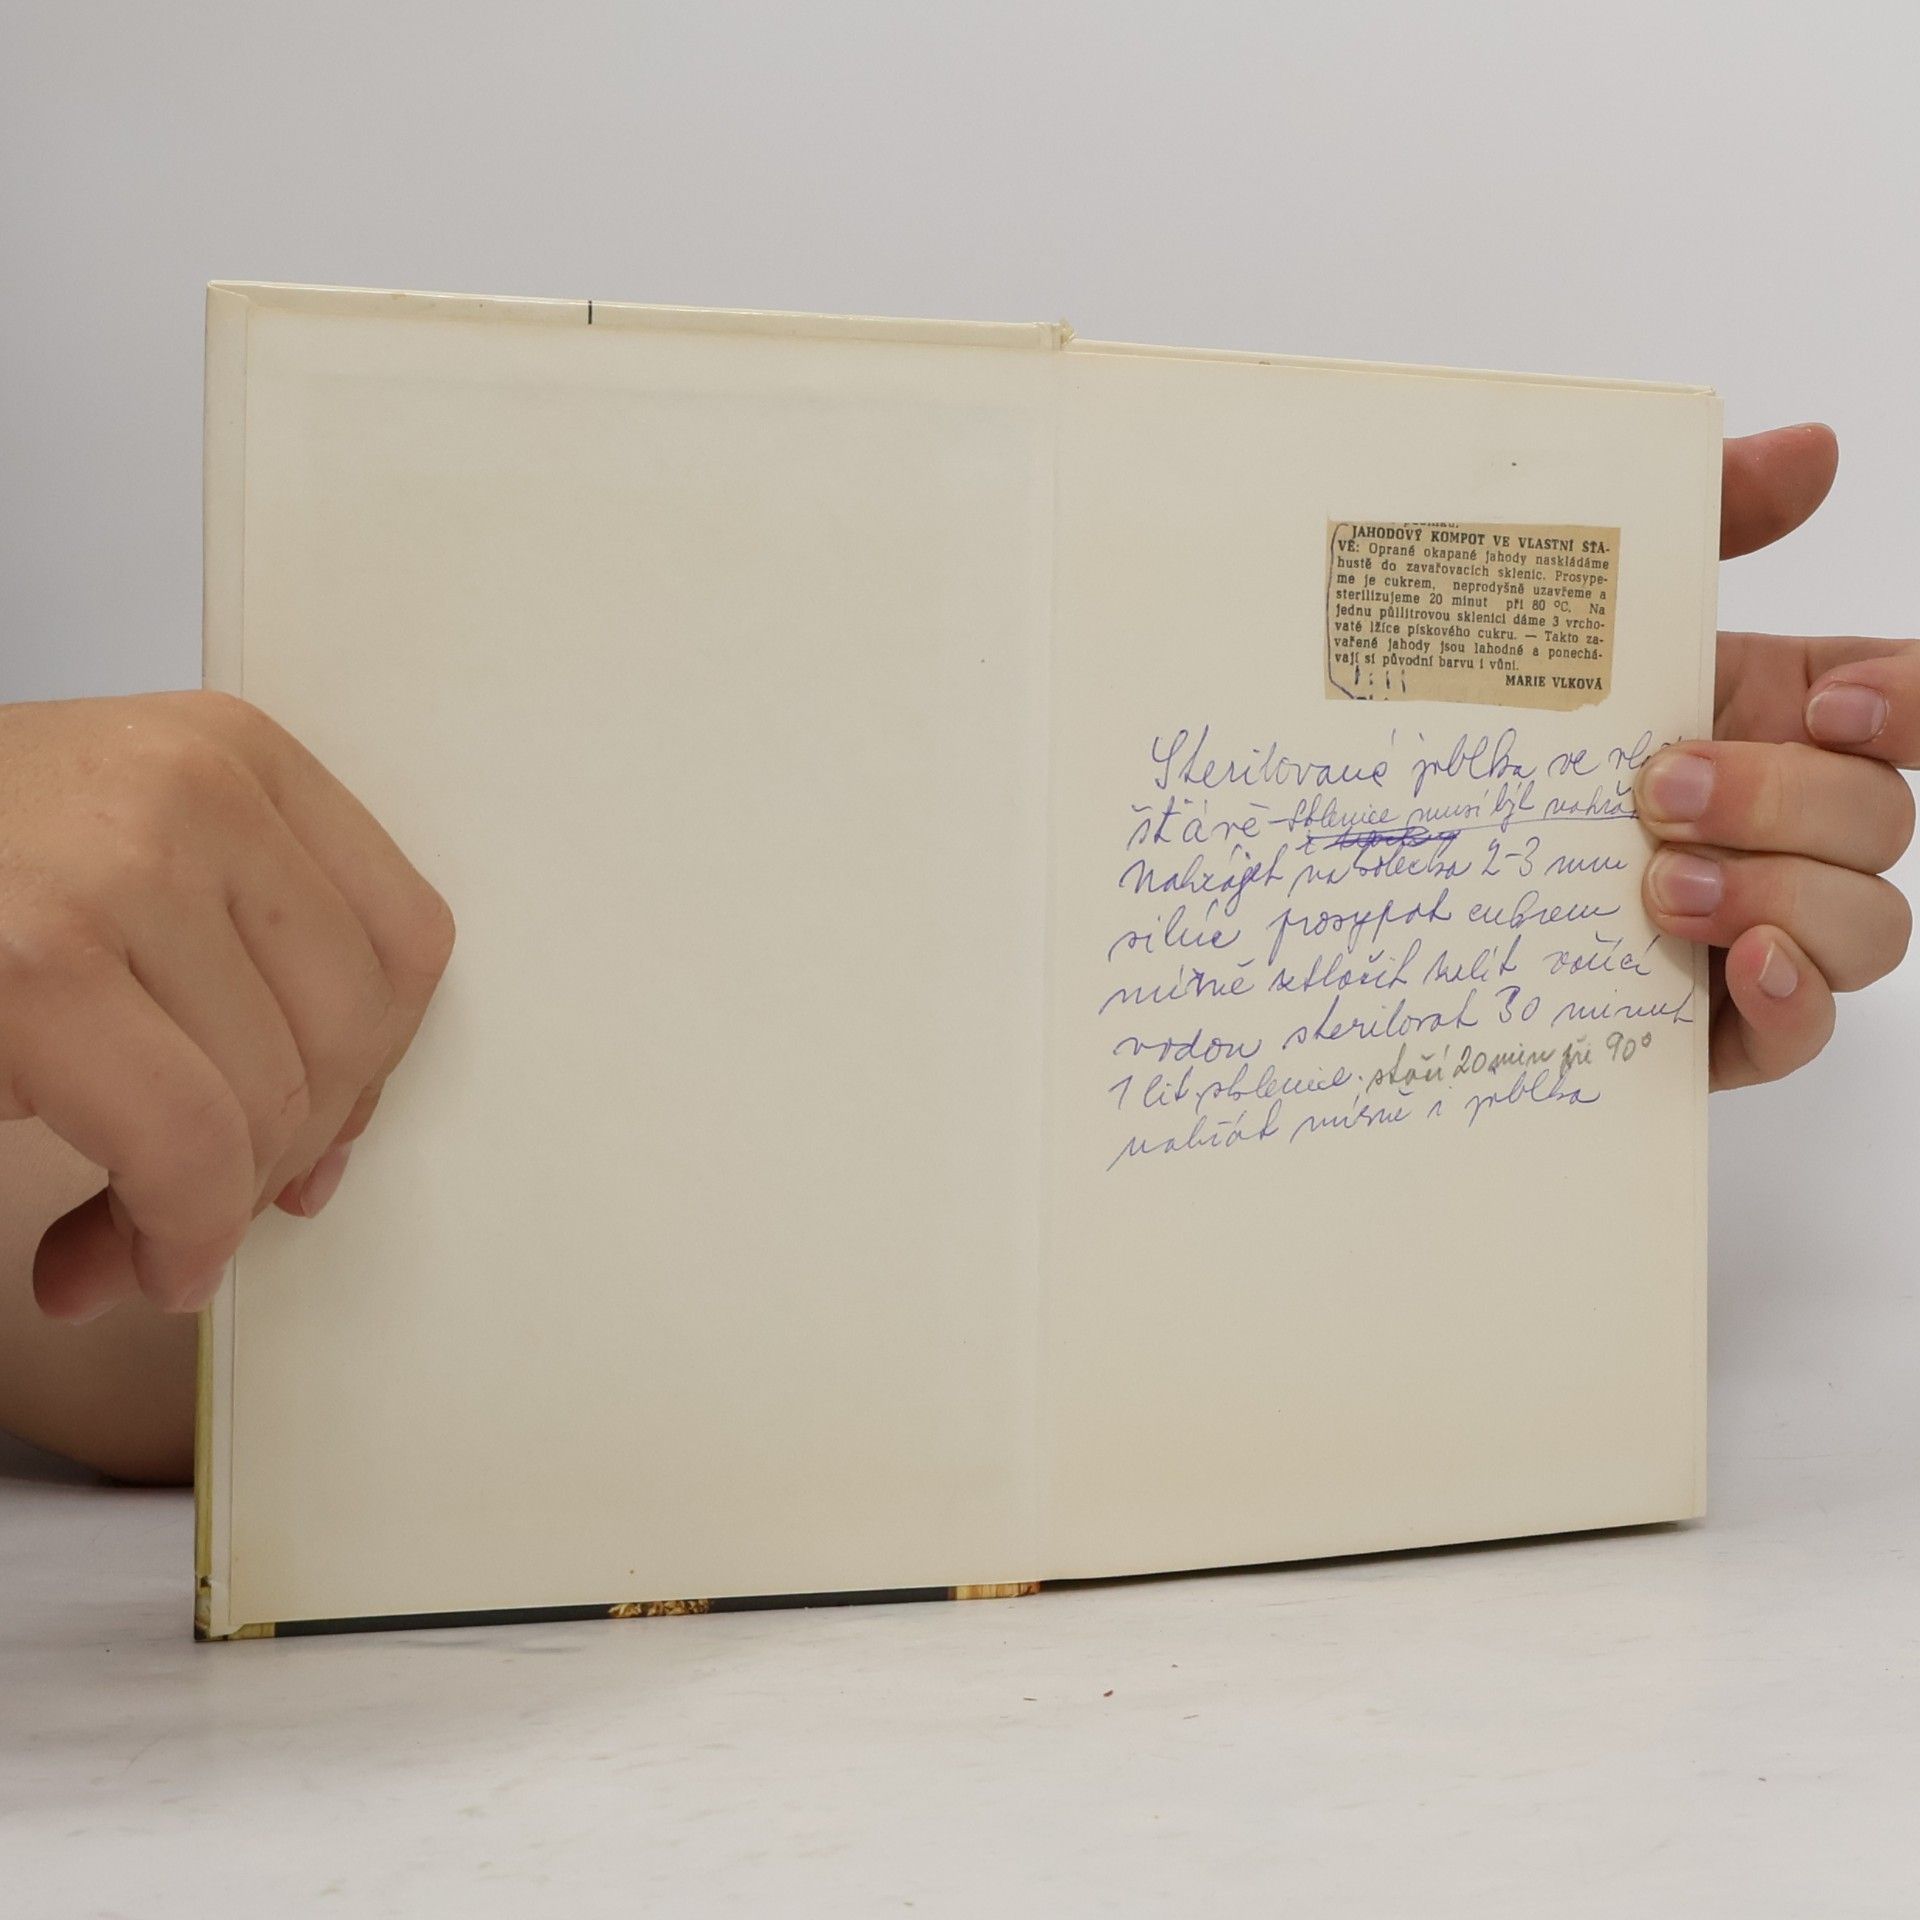 JAHODOVÝ KOMPOT VE VLASTNÍ ŠŤÁ-
VĚ: Oprané okapané jahody naskládáme
hustě do zavařovacích sklenic. Prosype-
me je cukrem, neprodyšně uzavřeme a
sterilizujeme 20 minut při 80 °C. Na
jednu půllitrovou sklenici dáme 3 vrcho-
vaté lžíce pískového cukru. — Takto za-
vařené jahody jsou lahodné a ponechá-
vají si původní barvu i vůni.
MARIE VLKOVÁ
Sterilované jablka ve
šťávě - Sklenice musí být
Nakrájet na kolečka 2-3 mm
silné prosypat cukrem
mírně zalít vařící
vodou sterilovat 30 minut
1 lit. sklenice. stačí 20 min při 90°
mírně i jablka